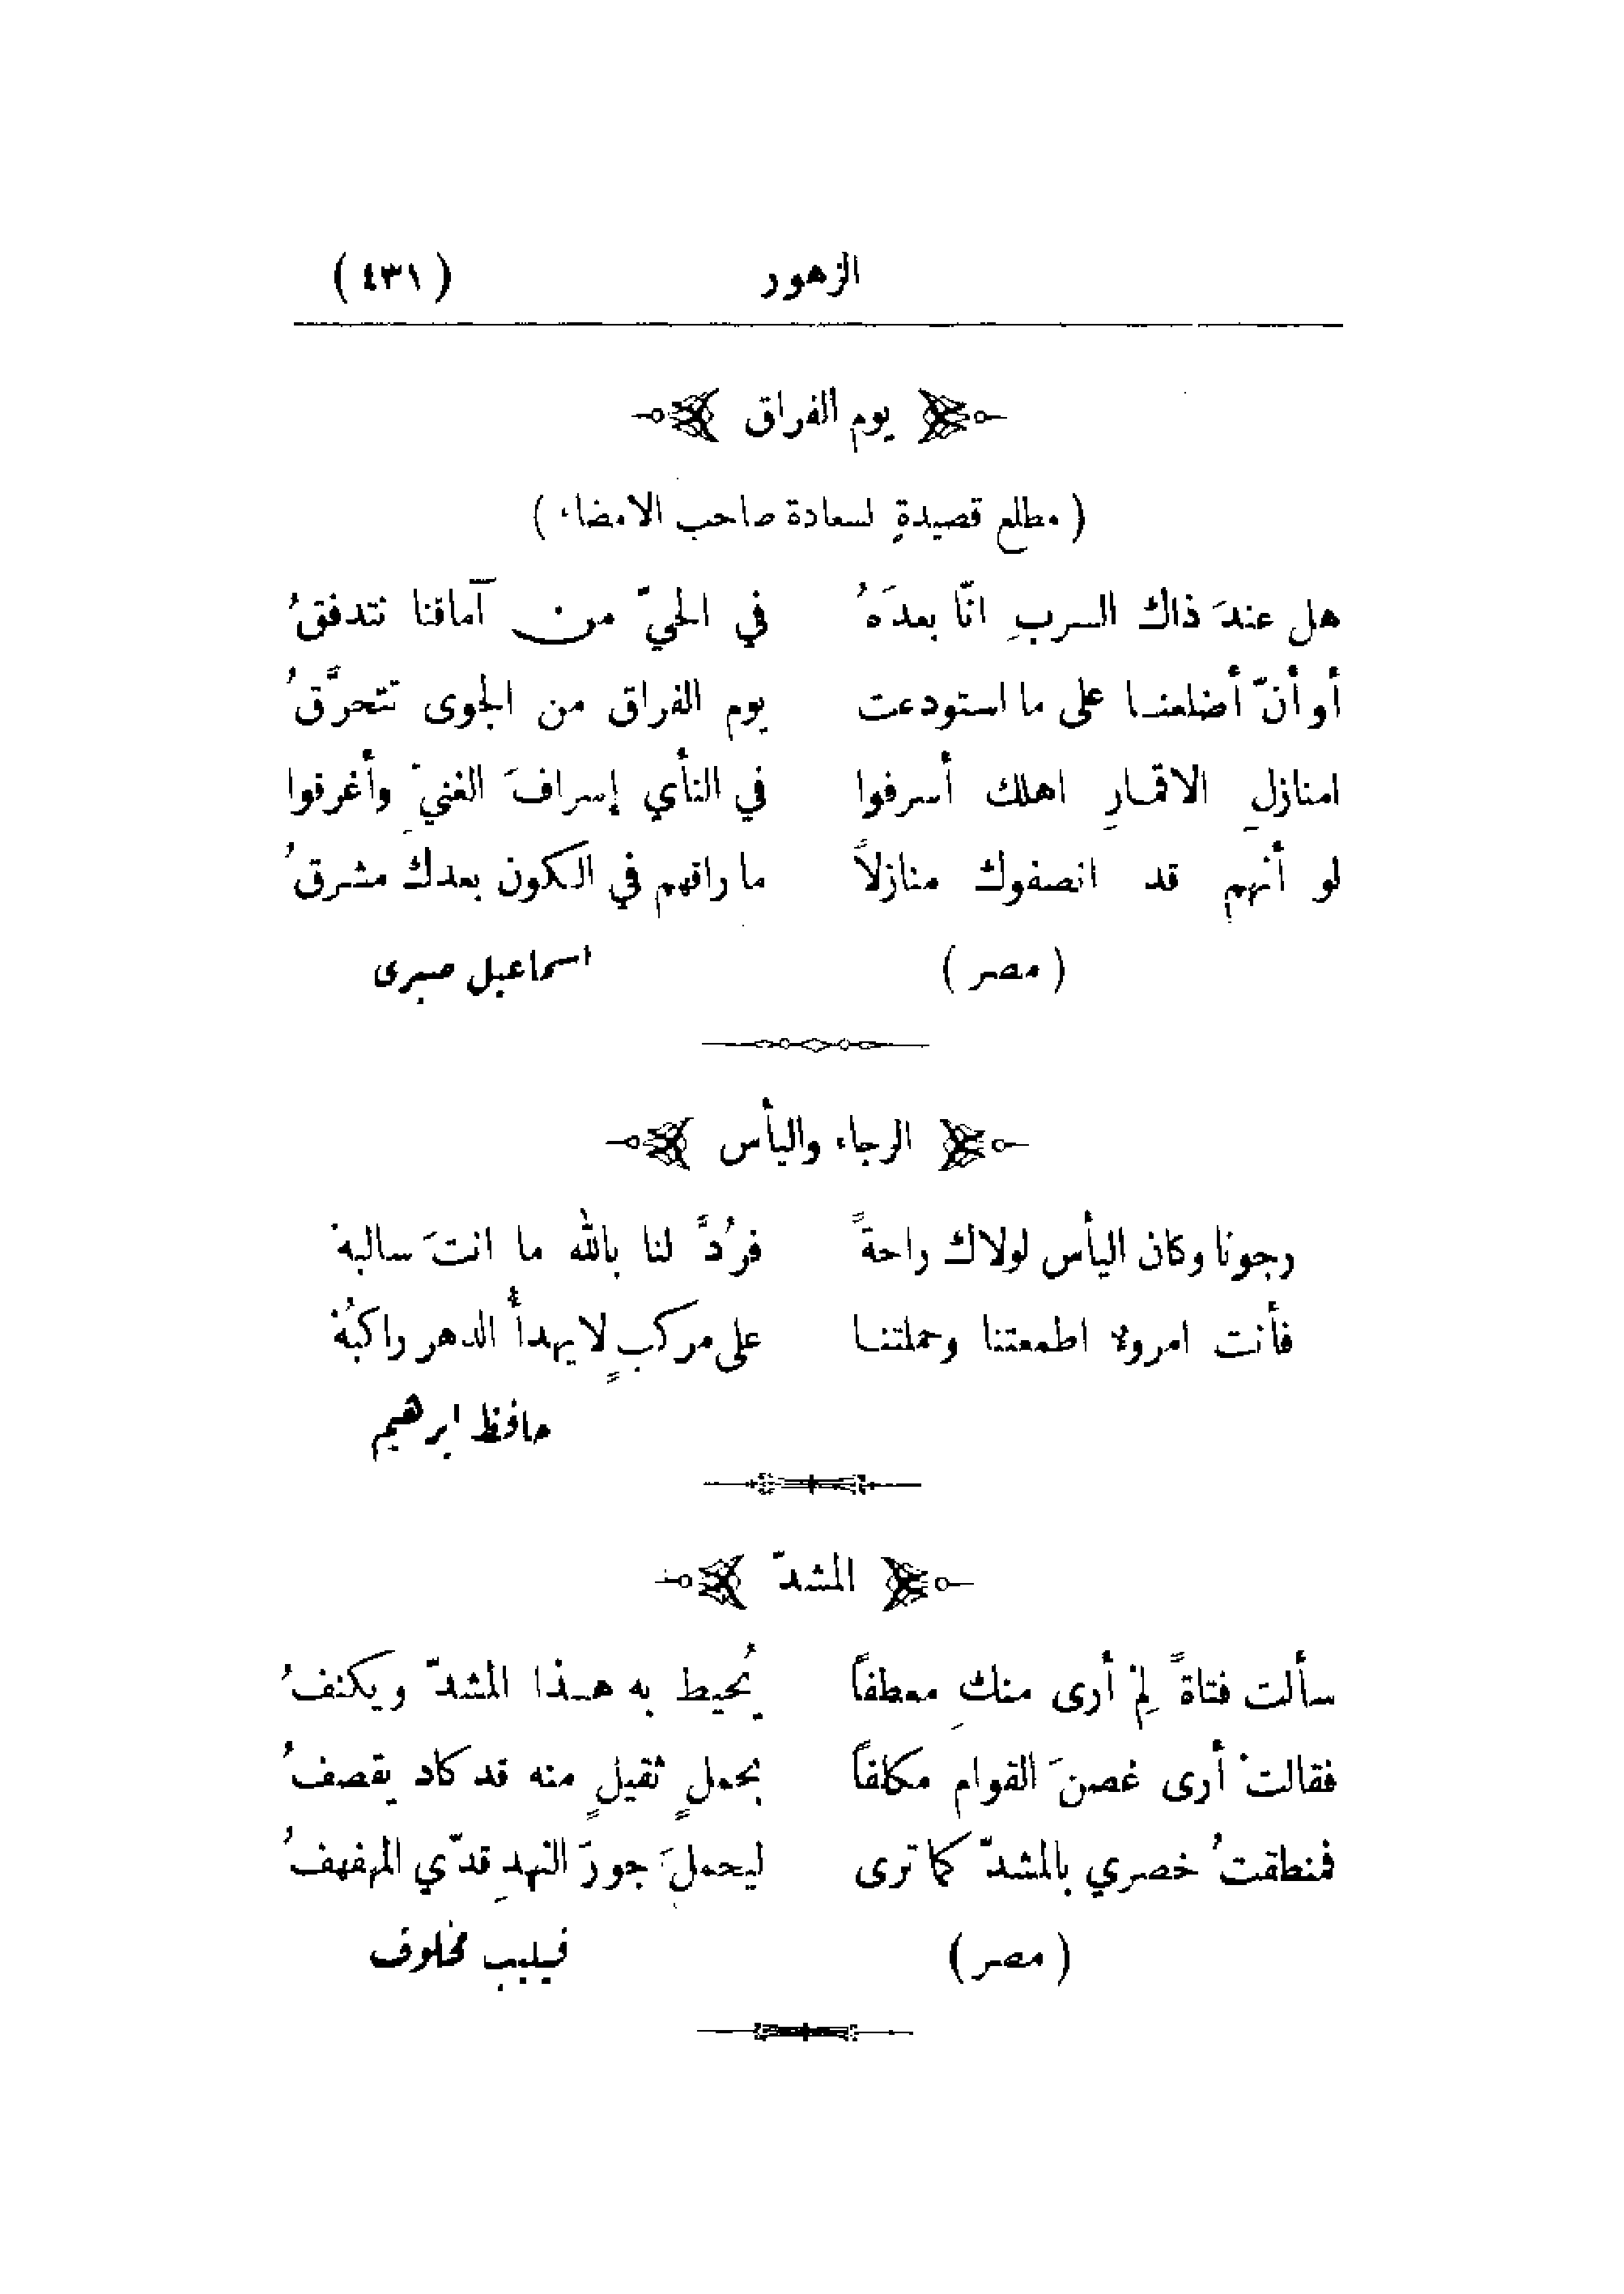 الزهور
(٤٣١)
يوم الفراق
(مطلع قصيدةٍ لسعادة صاحب الامضاء)
هل عندَ ذاك السربِ انّا بعدَهُ في الحيّ من آماقنا نتدفقُ
أو أنّ أضلعنا على ما استودعت يوم الفراق من الجوى تتحرَّقُ
امنازلِ الاقمارِ اهلك أسرفوا في النأي إسرافَ الغنيِّ وأغرقوا
لو أنهم قد انصفوك منازلاً ما راقهم في الكون بعدك مشرقُ
(مصر) اسماعيل صبري
الرجاء واليأس
رجونا وكان اليأس لولاك راحةً فرُدَّ لنا بالله ما انتَ سالبهْ
فأنت امروءٌ اطمعتنا وحملتنا على مركبٍ لا يهدأُ الدهر راكبُهْ
حافظ ابرهيم
المشدّ
سألت فتاةً لِمْ أرى منكِ معطفاً يُحيط به هذا المشدّ ويكنفُ
فقالتْ أرى غصنَ القوام مكلفاً بحملٍ ثقيلٍ منه قد كاد يقصفُ
فمنطقتُ خصري بالمشدّ كما ترى ليحملَ جورَ النهدِ قدّي المهفهفُ
(مصر) فيليب مخلوف